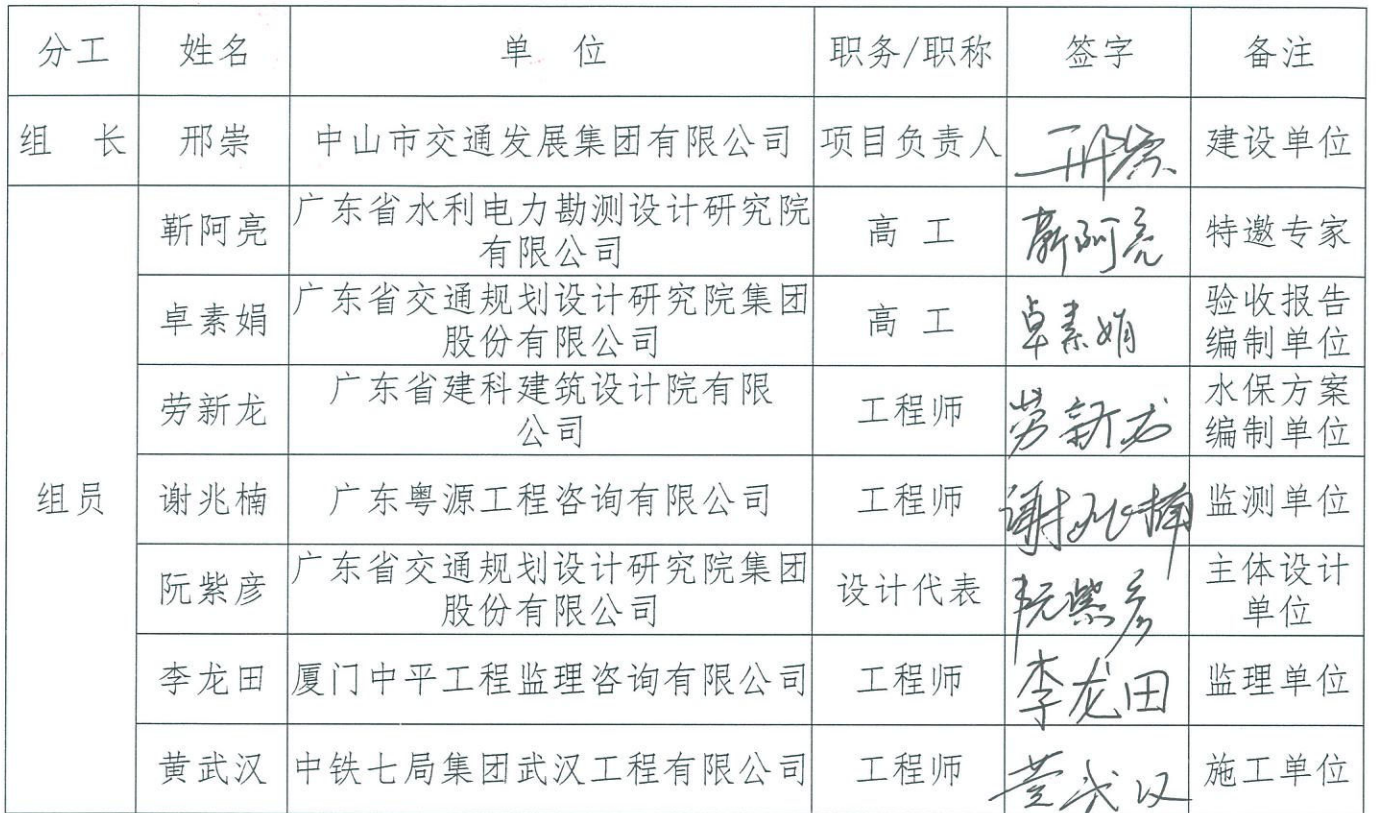 分工 姓名 单 位 职务/职称 签字 备注
组 长 邢崇 中山市交通发展集团有限公司 项目负责人 邢崇 建设单位
组员
靳阿亮 广东省水利电力勘测设计研究院
有限公司 高 工 靳阿亮 特邀专家
卓素娟 广东省交通规划设计研究院集团
股份有限公司 高 工 卓素娟 验收报告
编制单位
劳新龙 广东省建科建筑设计院有限
公司 工程师 劳新龙 水保方案
编制单位
谢兆楠 广东粤源工程咨询有限公司 工程师 谢兆楠 监测单位
阮紫彦 广东省交通规划设计研究院集团
股份有限公司 设计代表 阮紫彦 主体设计
单位
李龙田 厦门中平工程监理咨询有限公司 工程师 李龙田 监理单位
黄武汉 中铁七局集团武汉工程有限公司 工程师 黄武汉 施工单位